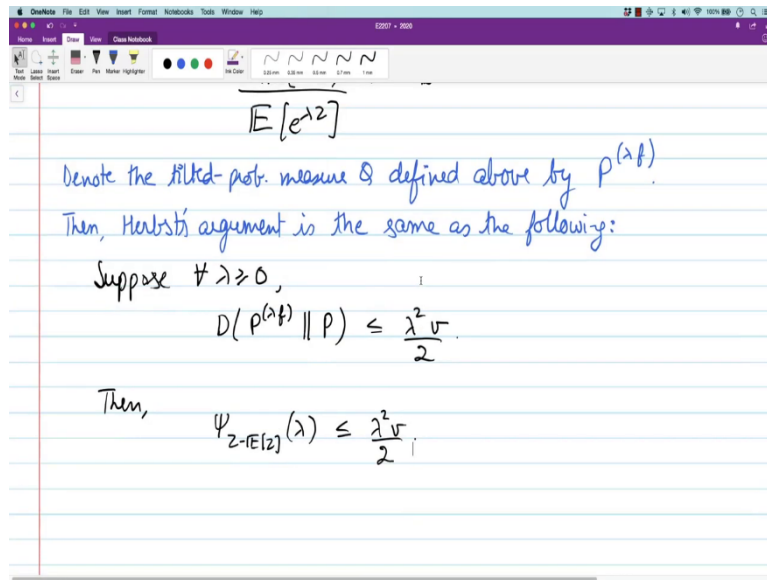 OneNote File Edit View Insert Format Notebooks Tools Window Help 100%
E2207 • 2020
Home Insert Draw View Class Notebook
Text Mode Lasso Select Insert Space Eraser Pen Marker Highlighter Ink Color 0.25 mm 0.35 mm 0.5 mm 0.7 mm 1 mm
𝔼[e^{λZ}]
Denote the tilted-prob. measure Q defined above by P^{(λf)}.
Then, Herbst's argument is the same as the following:
Suppose ∀ λ ≥ 0,
D(P^{(λf)} || P) ≤ λ²v / 2.
Then,
Ψ_{Z-𝔼[Z]}(λ) ≤ λ²v / 2.